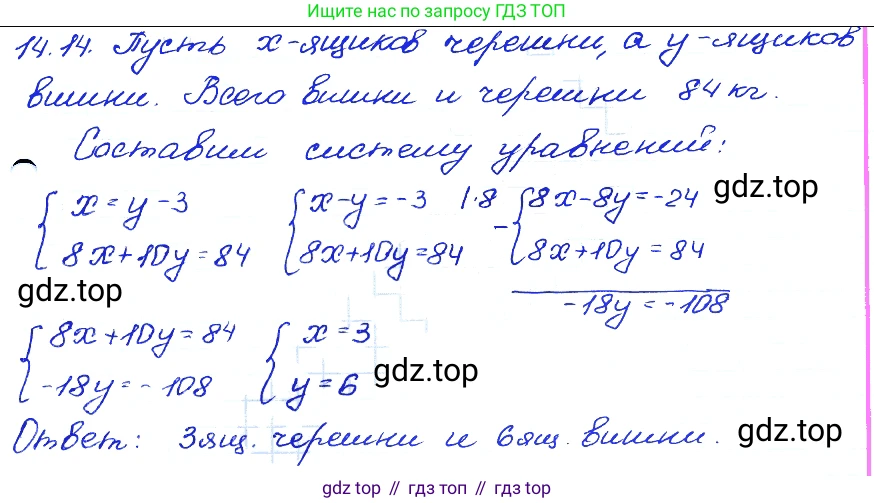 Ищите нас по запросу ГДЗ ТОП
14.14. Пусть x-ящиков черешни, а y-ящиков
вишни. Всего вишни и черешни 84 кг.
Составим систему уравнений:
{ x = y - 3 { x - y = -3 | · 8 - { 8x - 8y = -24 gdz.top
8x + 10y = 84 8x + 10y = 84 8x + 10y = 84
gdz.top -18y = -108
{ 8x + 10y = 84 { x = 3
-18y = -108 y = 6 gdz.top
Ответ: 3 ящ. черешни и 6 ящ. вишни. gdz.top
gdz top // гдз топ // gdz top